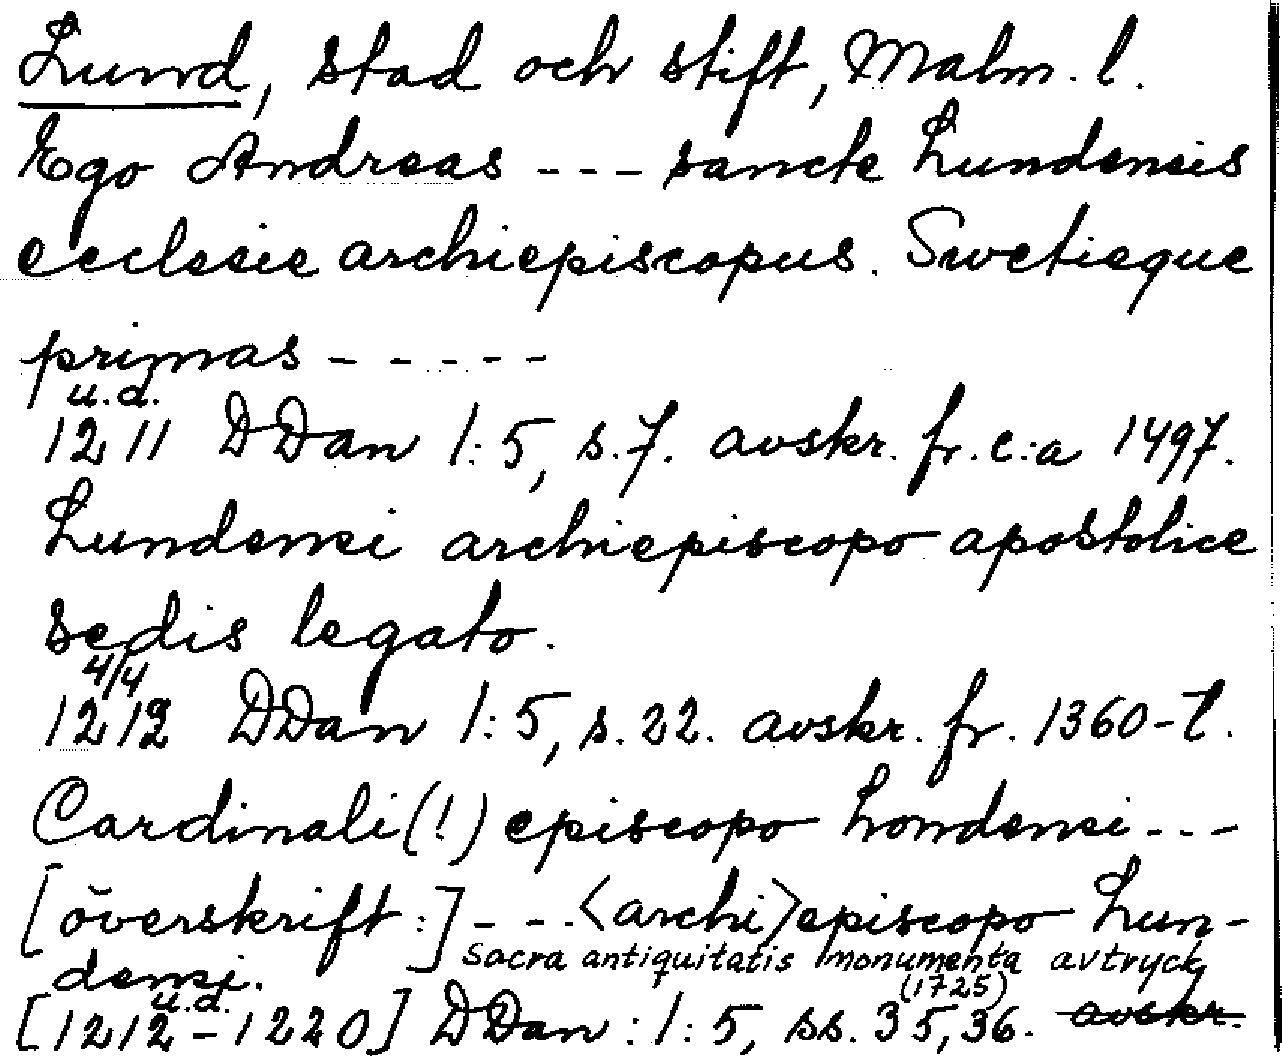 Lund, stad och stift, Malm. l.
Ego Andreas --- sancte Lundensis
ecclesie archiepiscopus. Swetieque
primas -----
u.d.
1211 DDan 1:5, s.7. avskr. fr. c:a 1497.
Lundensi archiepiscopo apostolice
sedis legato.
4/4
1212 DDan 1:5, s.22. avskr. fr. 1360-t.
Cardinali(!) episcopo Londensi ---
[överskrift:] --- <archi>episcopo Lun-
densi. Sacra antiquitatis monumenta avtryck
u.d. (1725)
[1212-1220] DDan: 1:5, ss. 35, 36. avskr.